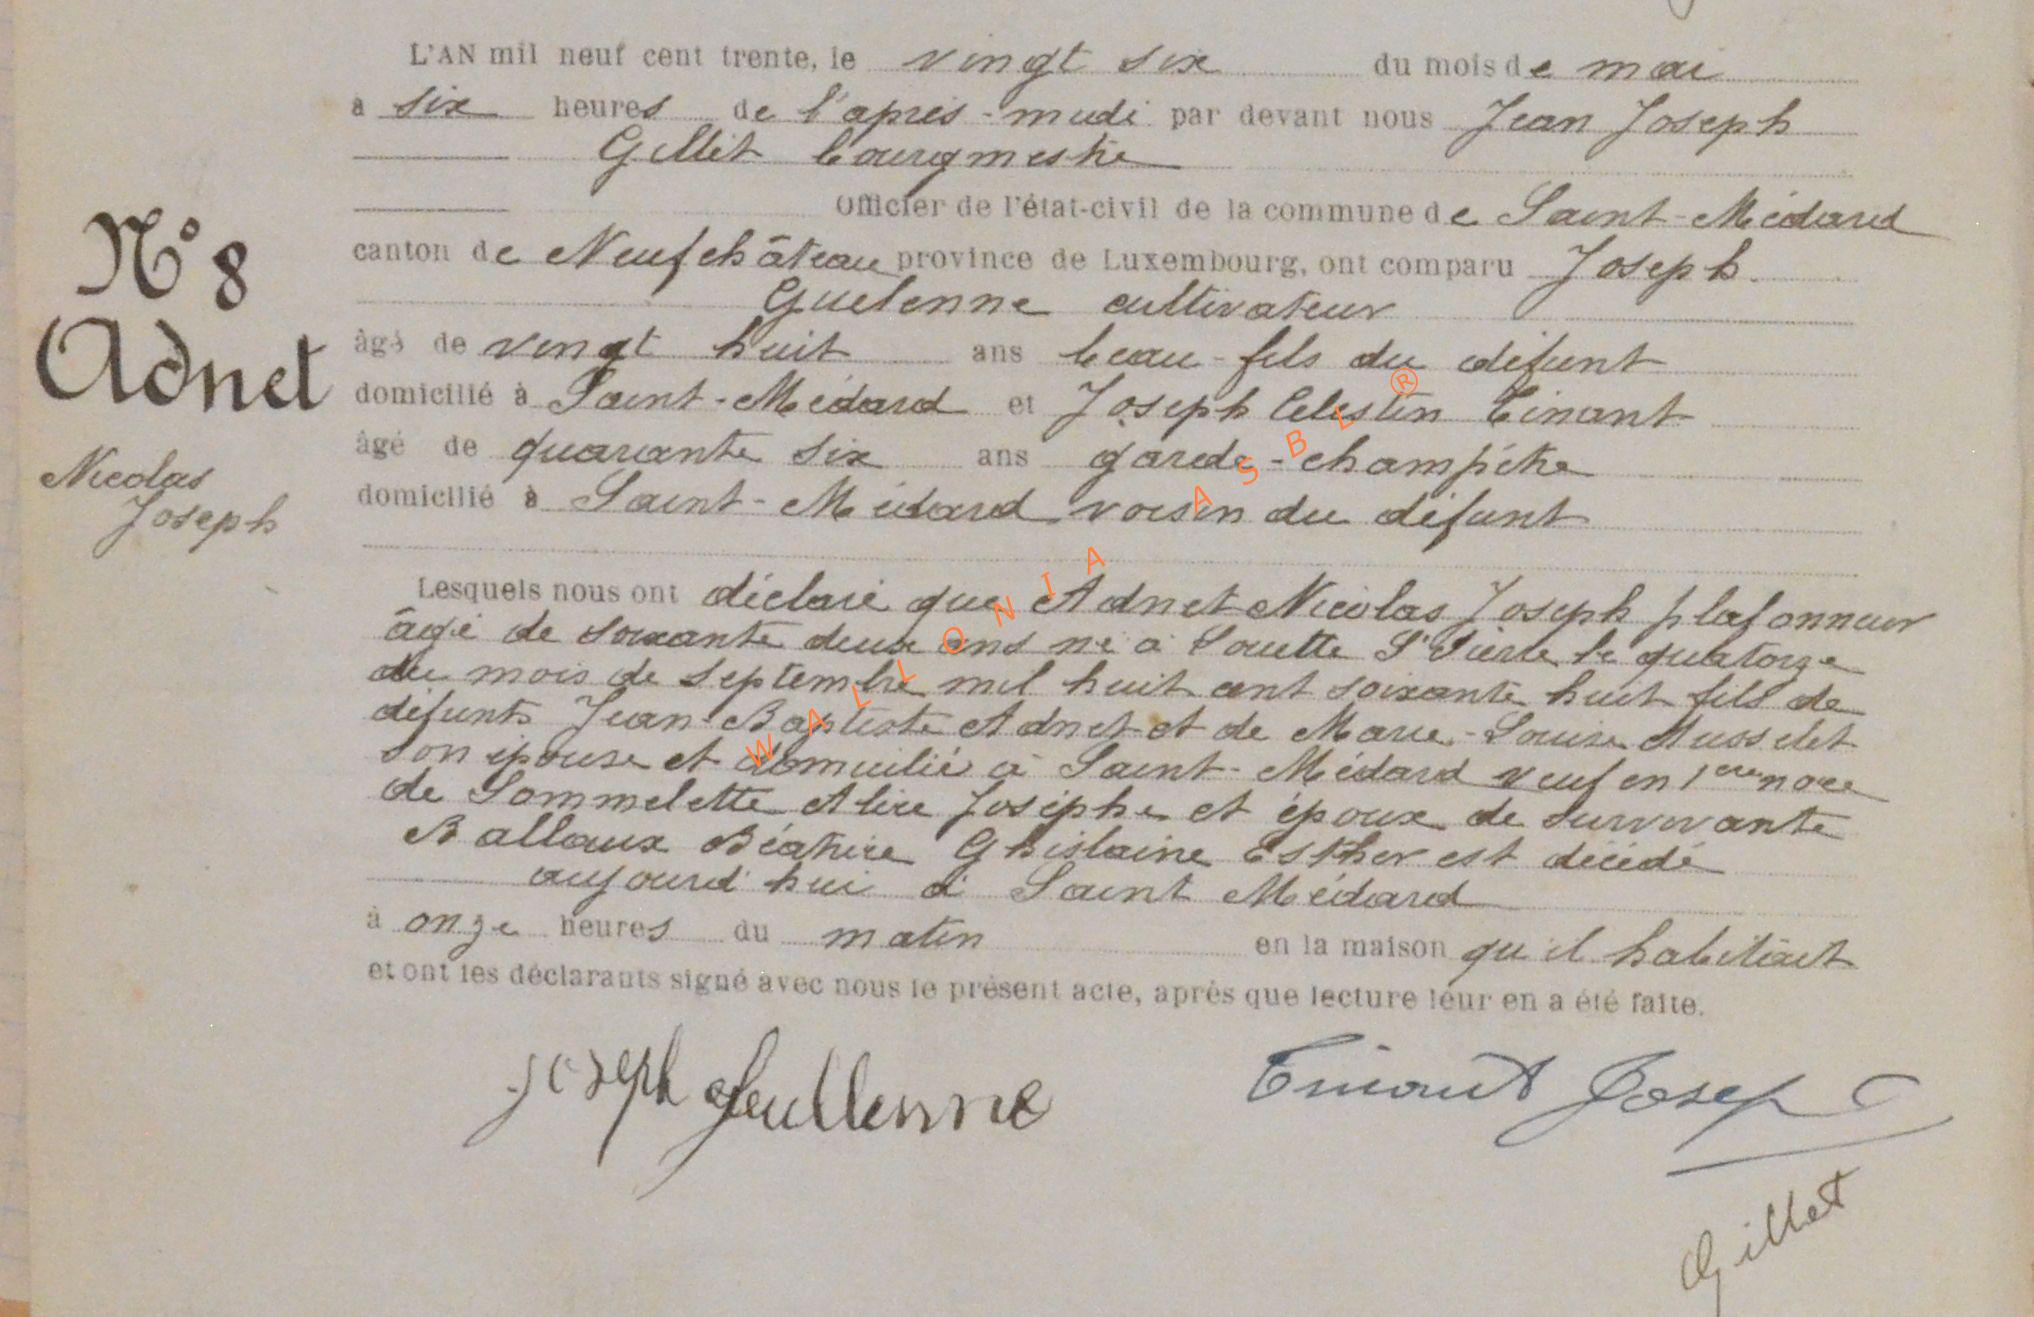 L'AN mil neuf cent trente, le vingt six du mois de mai
à six heures de l'après-midi par devant nous Jean Joseph
Gillet bourgmestre
Officier de l'état-civil de la commune de Saint-Médard
N° 8
canton de Neufchâteau province de Luxembourg, ont comparu Joseph
Guelenne cultivateur
Adnet
âgé de vingt huit ans beau-fils du défunt
domicilié à Saint-Médard et Joseph Célestin Tinant
Nicolas
âgé de quarante six ans garde-champêtre
Joseph
domicilié à Saint-Médard voisin du défunt
Lesquels nous ont déclaré que Adnet Nicolas Joseph plafonneur
âgé de soixante deux ans né à Louette St Pierre le quatorze
du mois de septembre mil huit cent soixante huit fils de
défunts Jean-Baptiste Adnet et de Marie-Louise
son épouse et domicilié à Saint-Médard veuf en 1ere noce
de Sommelette Alice Josèphe et époux de survivante
Ballaux Béatrice Ghislaine Esther est décédé
aujourd'hui à Saint Médard
à onze heures du matin en la maison qu'il habitait
et ont les déclarants signé avec nous le présent acte, après que lecture leur en a été faite.
Joseph Geullenne Tinant Joseph
Gillet
WALLONIA ASBL ®